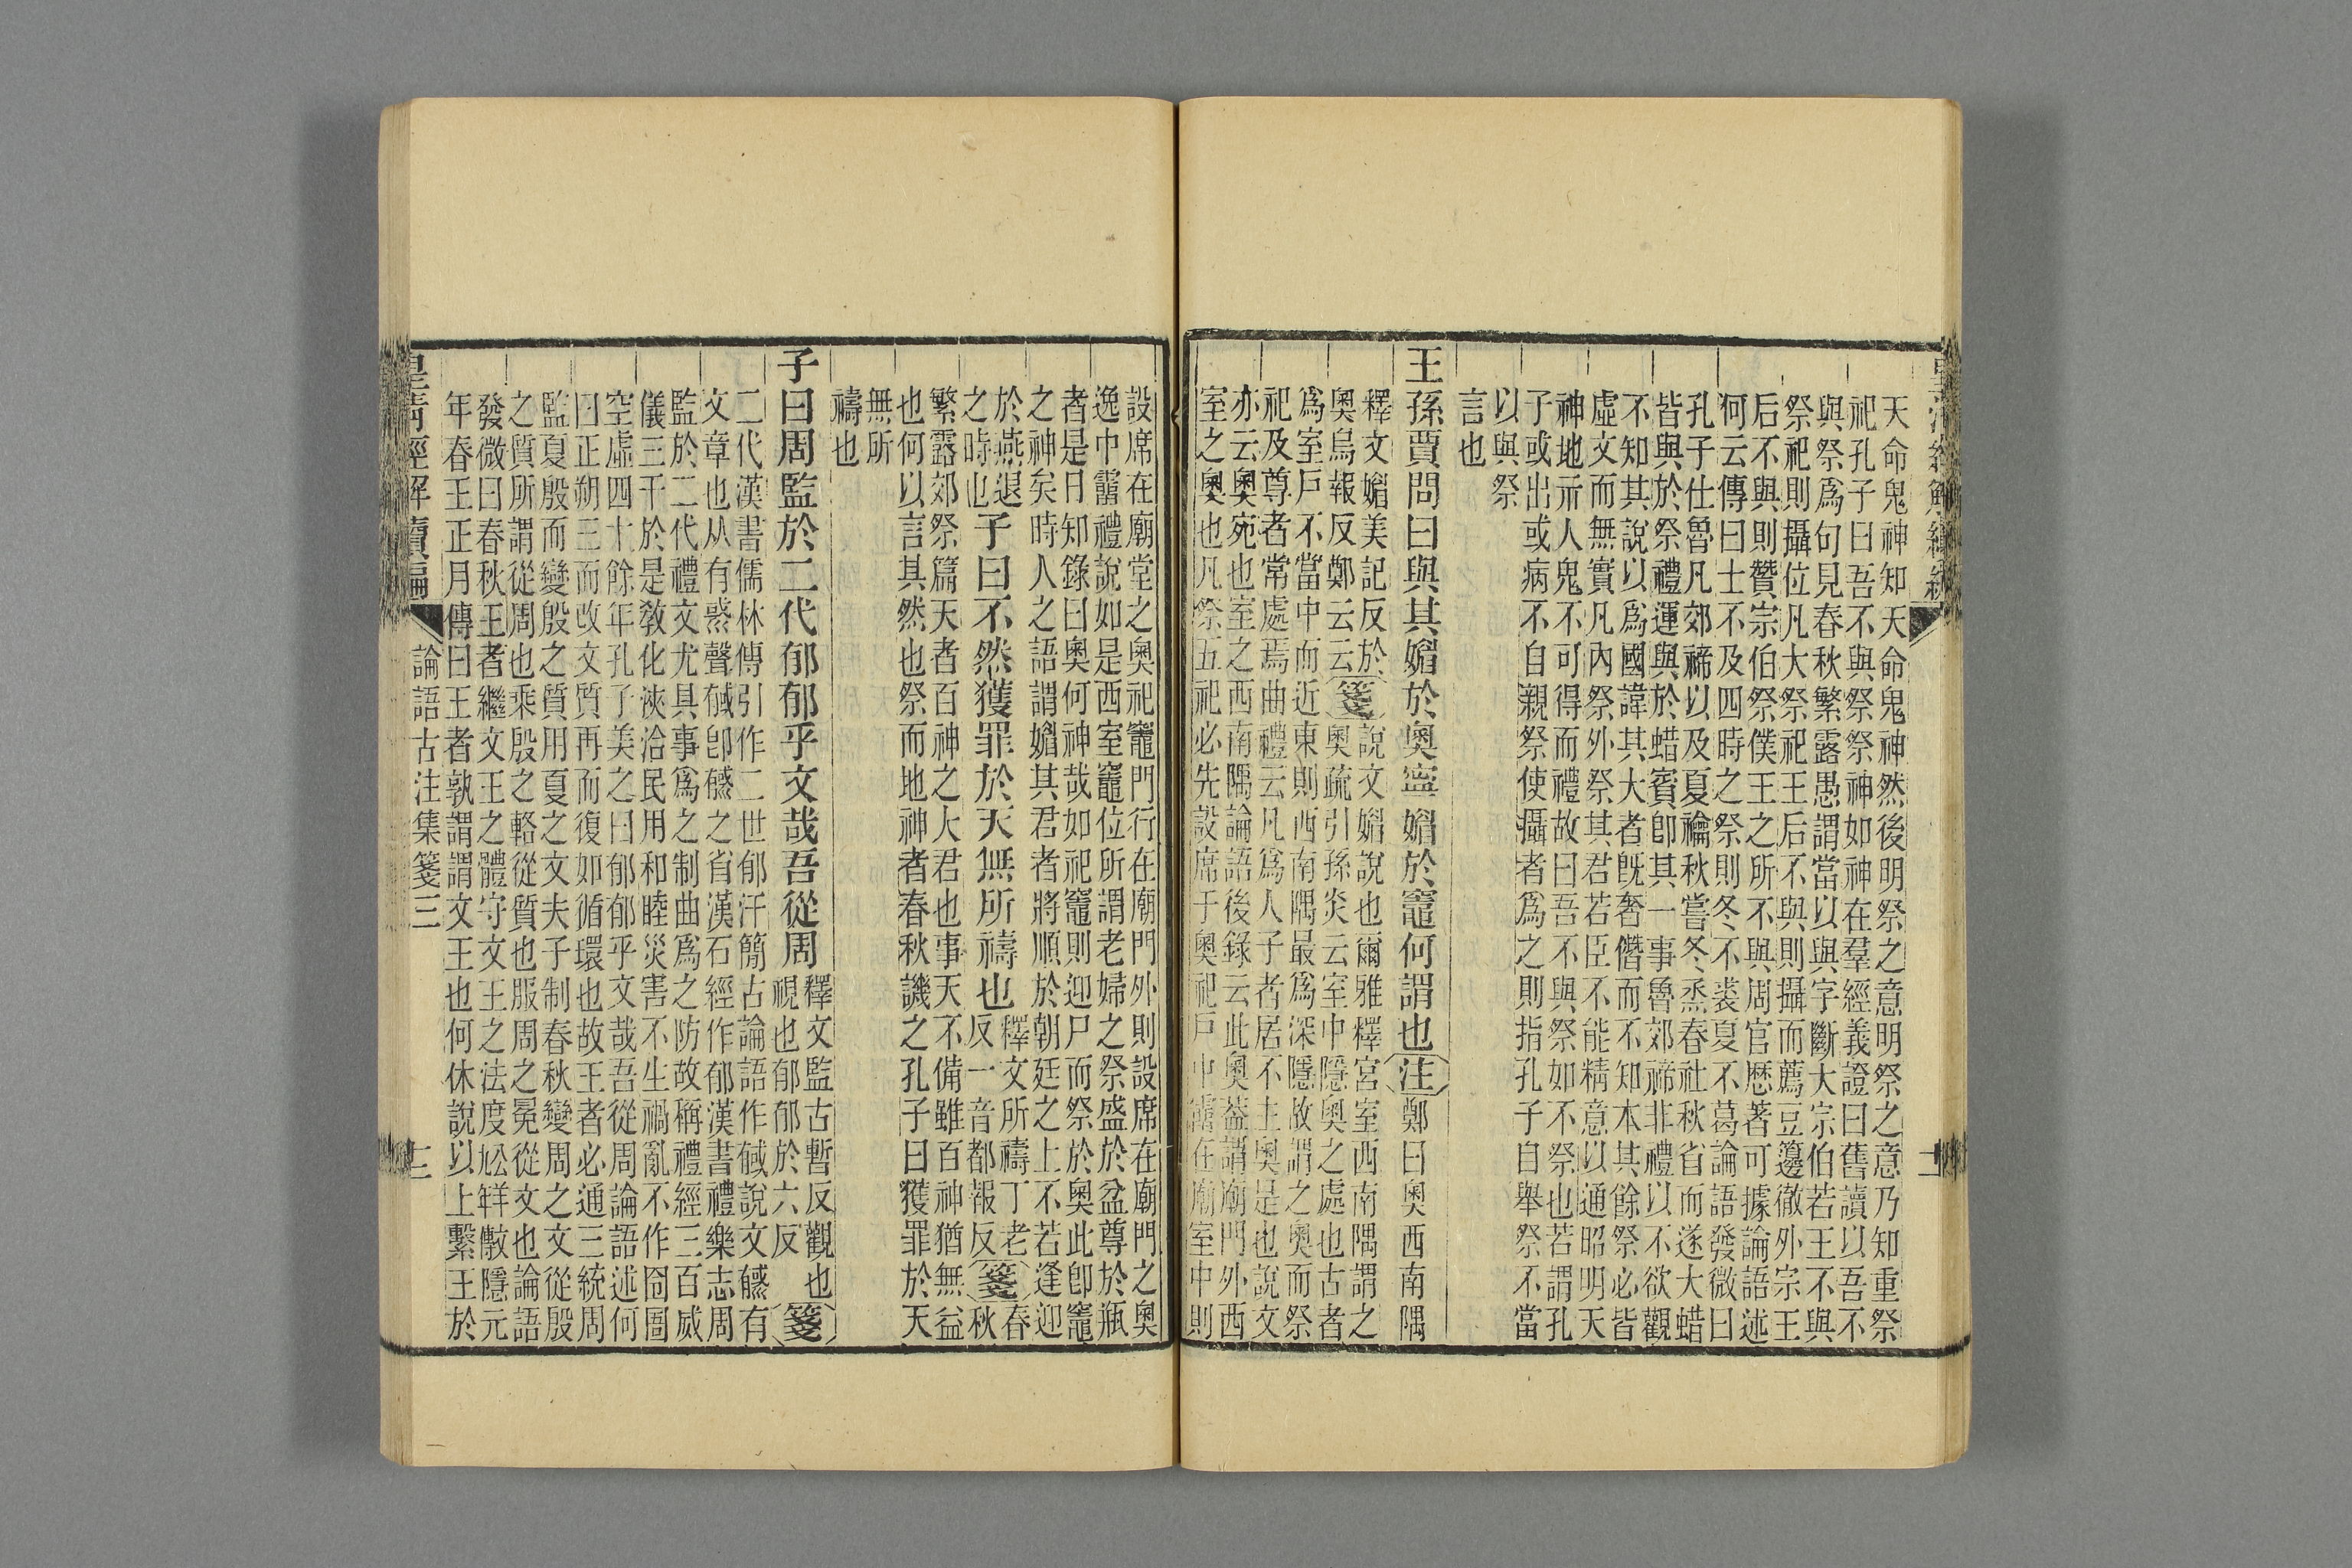 天命鬼神知天命鬼神然後明祭之意明祭之意乃知重祭
祀孔子曰吾不與祭祭神如神在羣經義證曰舊讀以吾不
與祭爲句見春秋繁露愚謂當以與字斷大宗伯若王不與
祭祀則攝位凡大祭祀王后不與則攝而薦豆籩徹外宗王
后不與則贊宗伯祭僕王之所不與周官歷著可據論語述
何云傳曰士不及四時之祭則冬不裘夏不葛論語發微曰
孔子仕魯凡郊禘以及夏禴秋嘗冬烝春社秋省而遂大蜡
皆與於祭禮運與於蜡賓卽其一事魯郊禘非禮以不欲觀
不知其說以爲國諱其大者旣奢僭而不知本其餘祭必皆
虛文而無實凡內祭外祭其君若臣不能精意以通昭明天
神地示人鬼不可得而禮故曰吾不與祭如不祭也若謂孔
子或出或病不自親祭使攝者爲之則指孔子自舉祭不當
以與祭
言也
王孫賈問曰與其媚於奧寧媚於竈何謂也注鄭曰奧西南隅
釋文媚美記反於
奧烏報反鄭云云箋說文媚說也爾雅釋宮室西南隅謂之
奧疏引孫炎云室中隱奧之處也古者
爲室戶不當中而近東則西南隅最爲深隱故謂之奧而祭
祀及尊者常處焉曲禮云凡爲人子者居不主奧是也說文
亦云奧宛也室之西南隅論語後錄云此奧葢謂廟門外西
室之奧也凡祭五祀必先設席于奧祀戶中霤在廟室中則
設席在廟堂之奧祀竈門行在廟門外則設席在廟門之奧
逸中霤禮說如是西室竈位所謂老婦之祭盛於盆尊於瓶
者是日知錄曰奧何神哉如祀竈則迎尸而祭於奧此卽竈
之神矣時人之語謂媚其君者將順於朝廷之上不若逢迎
於燕退
之時也子曰不然獲罪於天無所禱也釋文所禱丁老
反一音都報反箋春秋
繁露郊祭篇天者百神之大君也事天不備雖百神猶無益
也何以言其然也祭而地神者春秋譏之孔子曰獲罪於天
無所
禱也
子曰周監於二代郁郁乎文哉吾從周釋文監古暫反觀也
視也郁郁於六反箋
二代漢書儒林傳引作二世郁汗簡古論語作戫說文㦽有
文章也从有惑聲戫卽㦽之省漢石經作郁漢書禮樂志周
監於二代禮文尤具事爲之制曲爲之防故稱禮經三百威
儀三千於是敎化浹洽民用和睦災害不生禍亂不作囹圄
空虛四十餘年孔子美之曰郁郁乎文哉吾從周論語述何
曰正朔三而改文質再而復如循環也故王者必通三統周
監夏殷而變殷之質用夏之文夫子制春秋變周之文從殷
之質所謂從周也乘殷之輅從質也服周之冕從文也論語
發微曰春秋王者繼文王之體守文王之法度尨䍧㪚隱元
年春王正月傳曰王者孰謂謂文王也何休說以上繫王於
皇淸經解續編 論語古注集箋三 十二